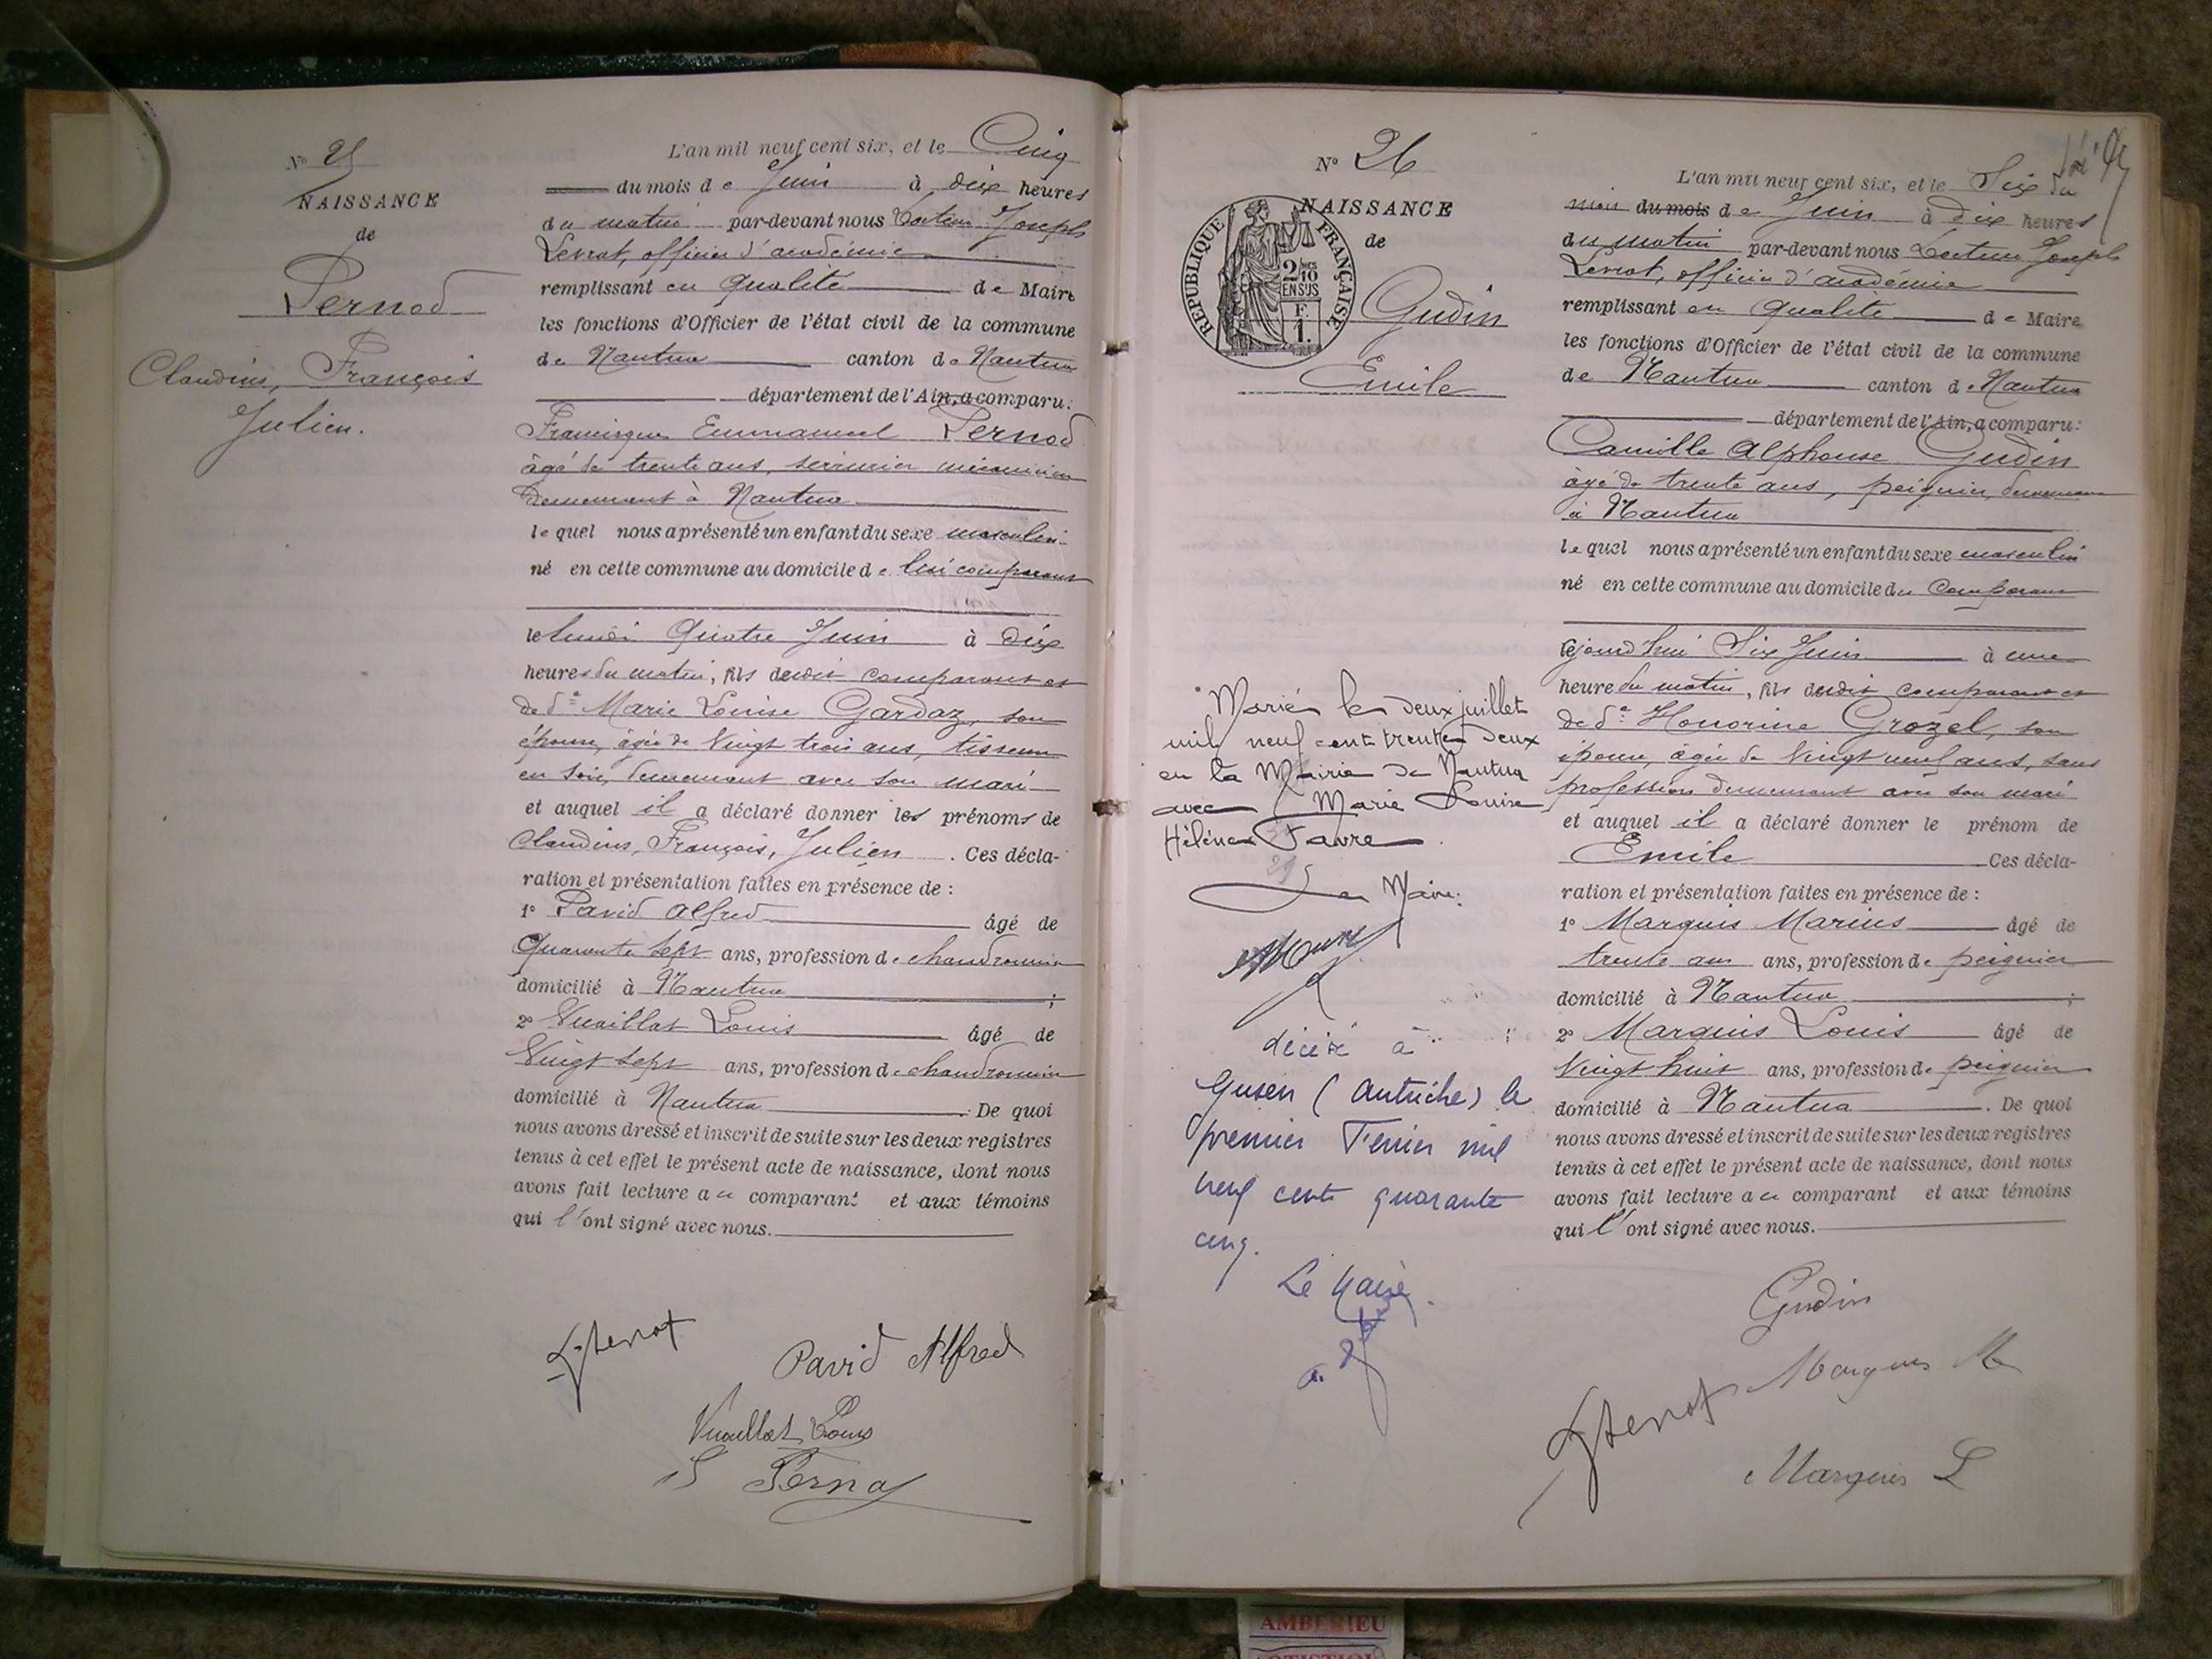 N° 25
NAISSANCE
de
Pernod
Claudius, François
Julien.
L'an mil neuf cent six, et le Cinq
du mois de Juin à dix heures
du matin par-devant nous Docteur Joseph
Levrat, officier d'académie
remplissant en qualité de Maire
les fonctions d'Officier de l'état civil de la commune
de Nantua canton de Nantua
département de l'Ain, a comparu:
Francisque Emmanuel Pernod
âgé de trente ans, serrurier mécanicien
demeurant à Nantua
lequel nous a présenté un enfant du sexe masculin
né en cette commune au domicile de lui comparant
le lundi Quatre Juin à dix
heures du matin, fils dudit comparant et
de de Marie Louise Gardaz, son
épouse, âgée de Vingt trois ans, tisseuse
en soie, demeurant avec son mari
et auquel il a déclaré donner les prénoms de
Claudius, François, Julien. Ces décla-
ration et présentation faites en présence de :
1° David Alfred âgé de
Quarante sept ans, profession de chaudronnier
domicilié à Nantua ;
2° Vuaillat Louis âgé de
Vingt sept ans, profession de chaudronnier
domicilié à Nantua. De quoi
nous avons dressé et inscrit de suite sur les deux registres
tenus à cet effet le présent acte de naissance, dont nous
avons fait lecture au comparant et aux témoins
qui l'ont signé avec nous.
David Alfred
Vuaillat Louis
N° 26
NAISSANCE
de
RÉPUBLIQUE FRANÇAISE
2/10
EN SUS
F.
1.
Gudin
Emile
Marié le deux juillet
mil neuf cent trente deux
en la Mairie de Nantua
avec Marie Louise
Hélène Favre.
Le Maire:
décédé à
Gusen (Autriche) le
premier Février mil
neuf cent quarante
cinq.
Le Maire.
L'an mil neuf cent six, et le Six du
mois du mois de Juin à dix heures
du matin par-devant nous Docteur Joseph
Levrat, officier d'académie
remplissant en qualité de Maire
les fonctions d'Officier de l'état civil de la commune
de Nantua canton de Nantua
département de l'Ain, a comparu:
Camille Alphonse Gudin
âgé de trente ans, peignier, demeurant
à Nantua
lequel nous a présenté un enfant du sexe masculin
né en cette commune au domicile du comparant
cejourd'hui Six Juin à une
heure du matin, fils dudit comparant et
de de Honorine Grozel, son
épouse, âgée de Vingt neuf ans, sans
profession demeurant avec son mari
et auquel il a déclaré donner le prénom de
Emile Ces décla-
ration et présentation faites en présence de :
1° Marquis Marius âgé de
trente ans ans, profession de peignier
domicilié à Nantua ;
2° Marquis Louis âgé de
Vingt huit ans, profession de peignier
domicilié à Nantua. De quoi
nous avons dressé et inscrit de suite sur les deux registres
tenus à cet effet le présent acte de naissance, dont nous
avons fait lecture au comparant et aux témoins
qui l'ont signé avec nous.
Gudin
Marquis M
Marquis L
AMBERIEU